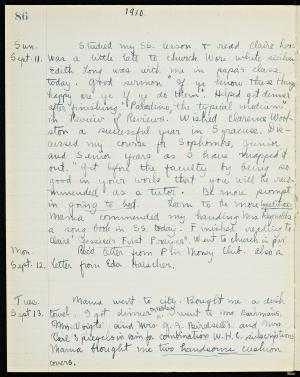 86
1910.
Sun. Studied my S.S. lesson & read Claire her
Sept. 11. was a little late to church. Wore white
Edith Long was with me in papa's class
today. Good sermon "If ye know these things
happy are ye if ye do them". Helped get dinner
after finishing "Palladino, the typical medium"
in Review of Reviews. Wished Clarence Wool-
ston a successful year in Syracuse. Dis-
cussed my course for Sophomore, Junior
and Senior years as I have mapped it
out. "Get before the faculty by being so
good in your work that you will be recom-
mended as a tutor". Be more prompt
in going to bed. Learn to be more
Mama commended my handling Mrs. Reynolds'
a song book in S.S. today. Finished reading to
Claire "Jessica's First Prayer". Went to church in
Mon. Rec'd letter from Phi Money Club. Also a
Sept. 12. letter from Eda
Tues. Mama went to city. Bought me a dish
Sept 13. towel. I got dinner. I went to Mrs.
Mrs. Voigts' and Mrs. G. A. Birdsell's. and Mrs.
Carl in rain for combination W.H.C. subscriptions
Mama bought me two handsome cushion
covers.